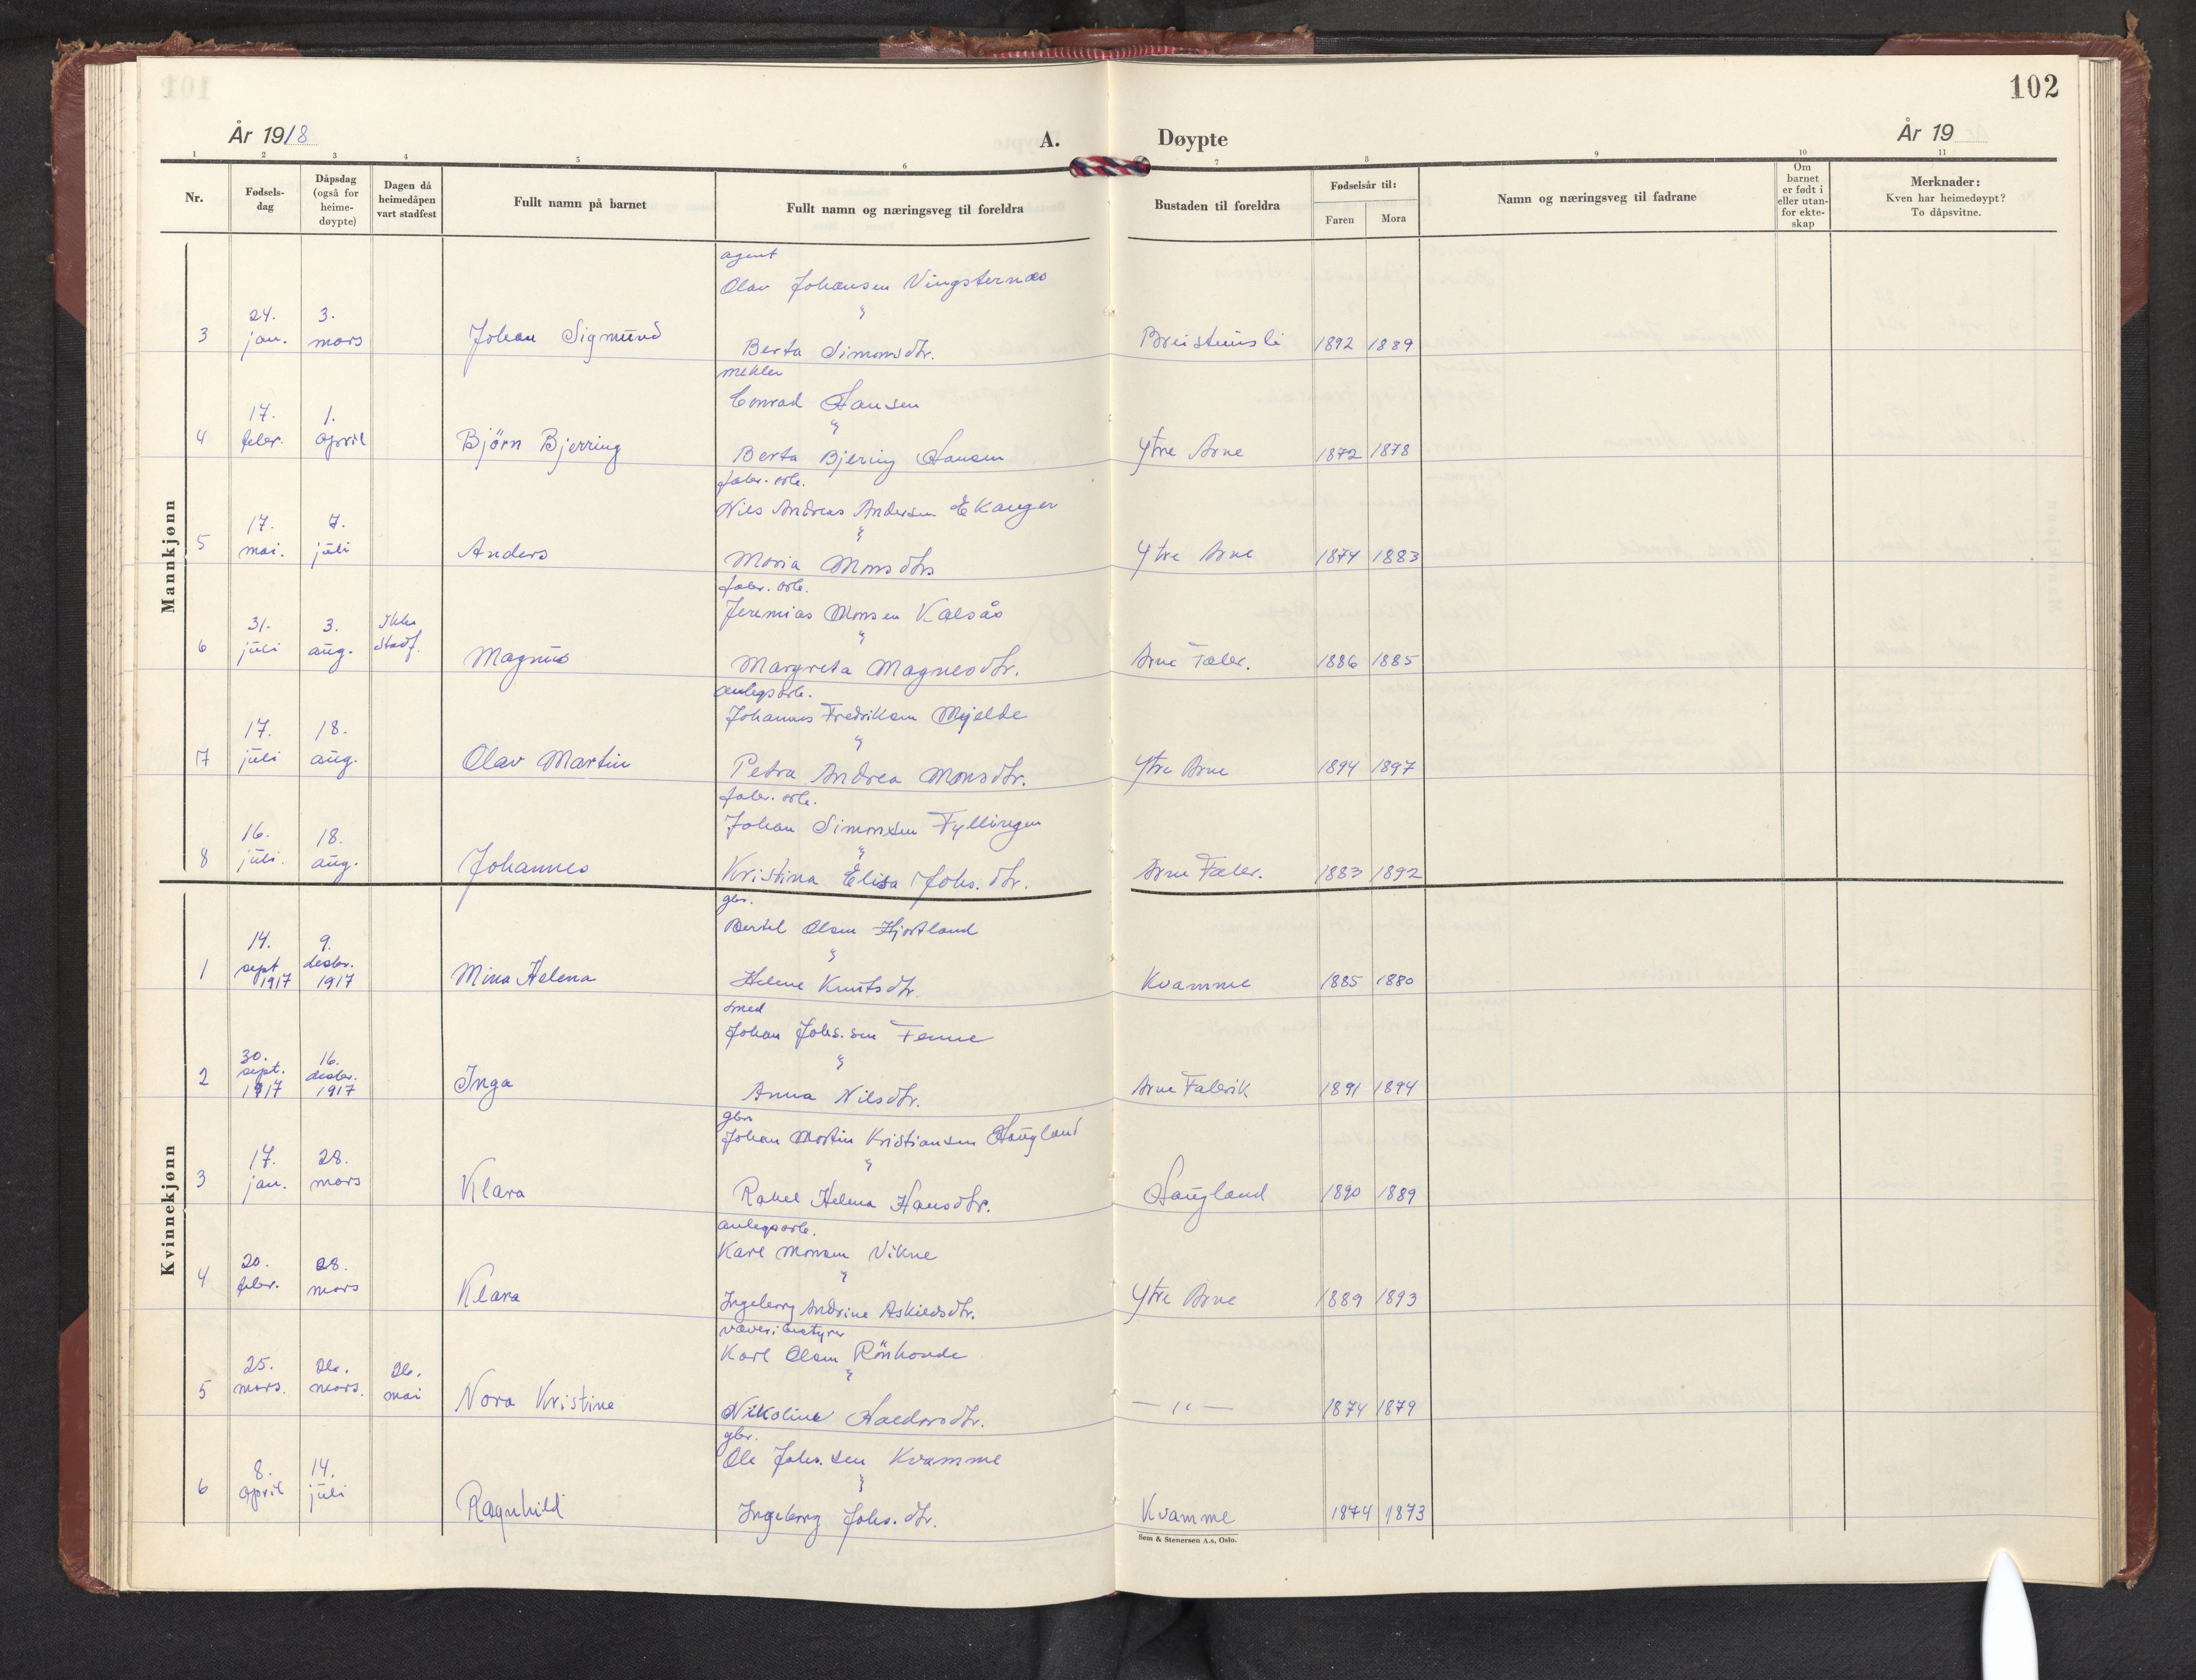 102
År 1918
A.
Døypte
År 19
1 2 3 4 5 6 7 8 9 10 11
Nr.
Fødsels-
dag
Dåpsdag
(også for
heime-
døypte)
Dagen då
heimedåpen
vart stadfest
Fullt namn på barnet
Fullt namn og næringsveg til foreldra
Bustaden til foreldra
Fødselsår til:
Faren Mora
Namn og næringsveg til fadrane
Om
barnet
er født i
eller utan-
for ekte-
skap
Merknader:
Kven har heimedøypt?
To dåpsvitne.
Mannkjønn
agent
Olav Johansen Vingsternæs
"
24. 3.
3 jan. mars Johan Sigmund Berta Simonsdtr. Breistunsli 1892 1889
mekler
Conrad Hansen
"
17. 1.
4 febr. april Björn Bjerring Berta Bjering Hansen Ytre Arne 1872 1878
fabr. arb.
Nils Andreas Andersen Ekanger
"
17. 7.
5 mai. juli Anders Maria Monsdtr Ytre Arne 1874 1883
fabr. arb.
Jeremias Monsen Kalsås
"
31. 3. Ikke
6 juli aug. stadf. Magnus Margreta Magnesdtr. Arne Fabr. 1886 1885
anlegsarb.
Johannes Fredriksen Mjelde
"
17. 18.
7 juli aug. Olav Martin Petra Andrea Monsdtr. Ytre Arne 1894 1897
fabr. arb.
Johan Simonsen Fyllingen
"
16. 18.
8 juli. aug. Johannes Kristina Elisa Johs. dtr. Arne Fabr. 1883 1892
Kvinnekjønn
gbr.
Bertel Olsen Hjortland
"
14. 9.
sept desbr.
1 1917 1917 Mina Helena Helene Knutsdtr. Kvamme 1885 1880
smed
Johan Johs. sen Tenne
"
30. 16.
sept. desbr.
2 1917 1917 Inga Anna Nilsdtr. Arne Fabrik 1891 1894
gbr
Johan Martin Kristiansen Haugland
"
17. 28.
3 jan. mars Klara Rakel Helena Hansdtr. Haugland 1890 1889
anlegsarb.
Karl Monsen Vikne
"
20. 28.
4 febr. mars Klara Ingeborg Andrine Askildsdtr. Ytre Arne 1889 1893
væveribestyrer
Karl Olsen Rönhovde
"
25. 26. 26.
5 mars. mars. mai Nora Kristine Nikoline Haldorsdtr. — " — 1874 1879
gbr.
Ole Johs. sen Kvamme
"
8. 14.
6 april juli Ragnhild Ingeborg Johs. dtr. Kvamme 1874 1873
Sem & Stenersen A.s, Oslo.